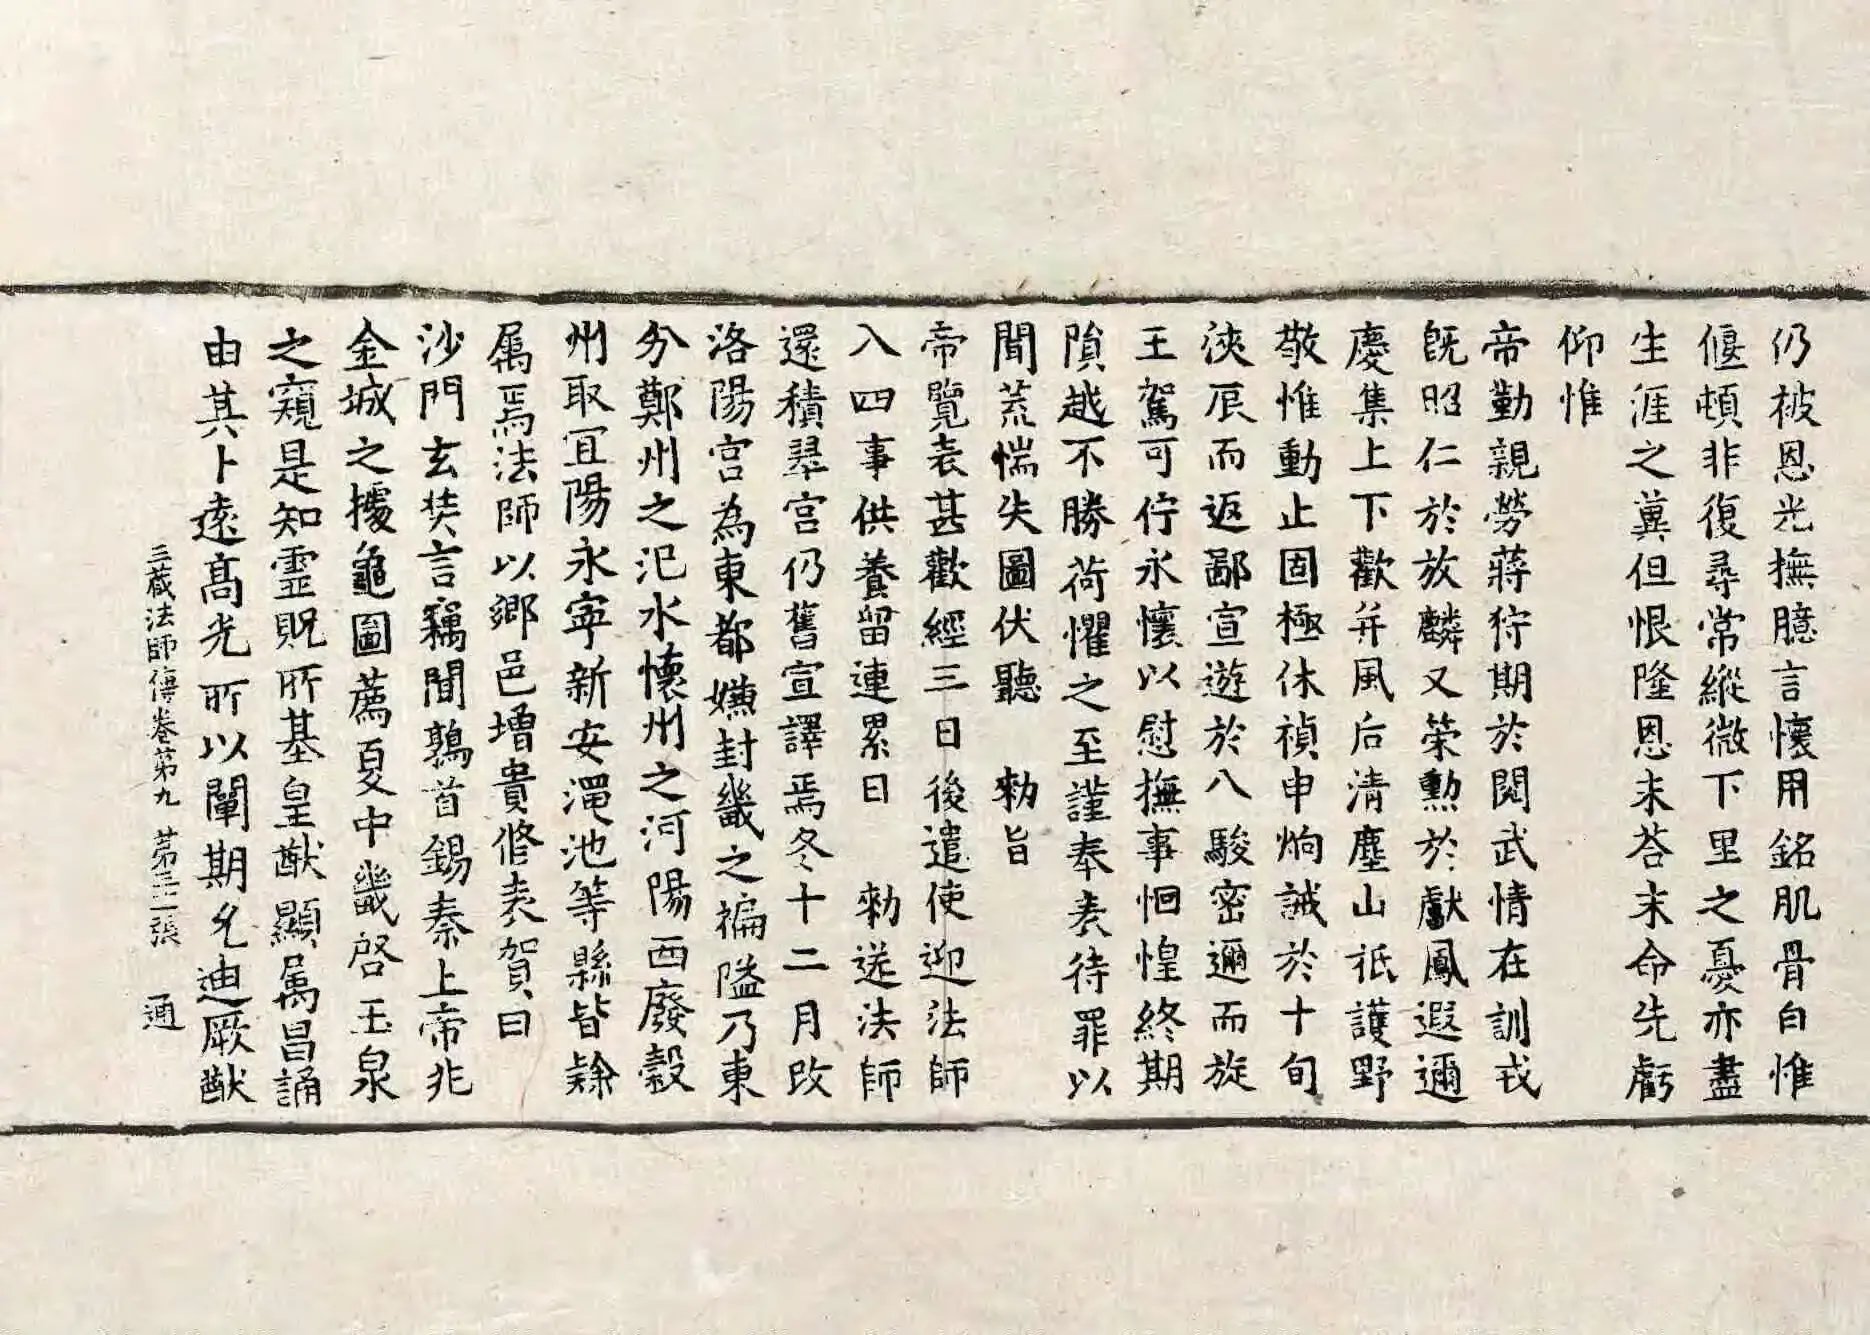 仍被恩光撫臆言懷用銘肌骨自惟
偃頓非復尋常縱微下里之憂亦盡
生涯之冀但恨隆恩未荅末命先虧
仰惟
帝勤親勞蔣狩期於閱武情在訓戎
旣昭仁於放麟又榮勲於獻鳳遐邇
慶集上下歡并風后清塵山祇護野
敬惟動止固極休禎申炯誡於十旬
浹辰而返鄙宣遊於八駿密邇而旋
王駕可佇永懷以慰撫事恛惶終期
隕越不勝荷懼之至謹奉表待罪以
聞荒惴失圖伏聽 勑旨
帝覽表甚歡經三日後遣使迎法師
入四事供養留連累日 勑送法師
還積翠宮仍舊宣譯焉冬十二月改
洛陽宮為東都嫌封畿之褊隘乃東
分鄭州之汜水懷州之河陽西廢穀
州取宜陽永寧新安澠池等縣皆隸
属焉法師以鄉邑增貴修表賀曰
沙門玄奘言竊聞鶉首錫秦上帝兆
金城之據龜圖薦夏中畿啓玉泉
之窺是知霊貺所基皇猷顯属昌誦
由其卜遠髙光所以闡期允迪厥猷
三蔵法師傳卷第九 苐三二張 通